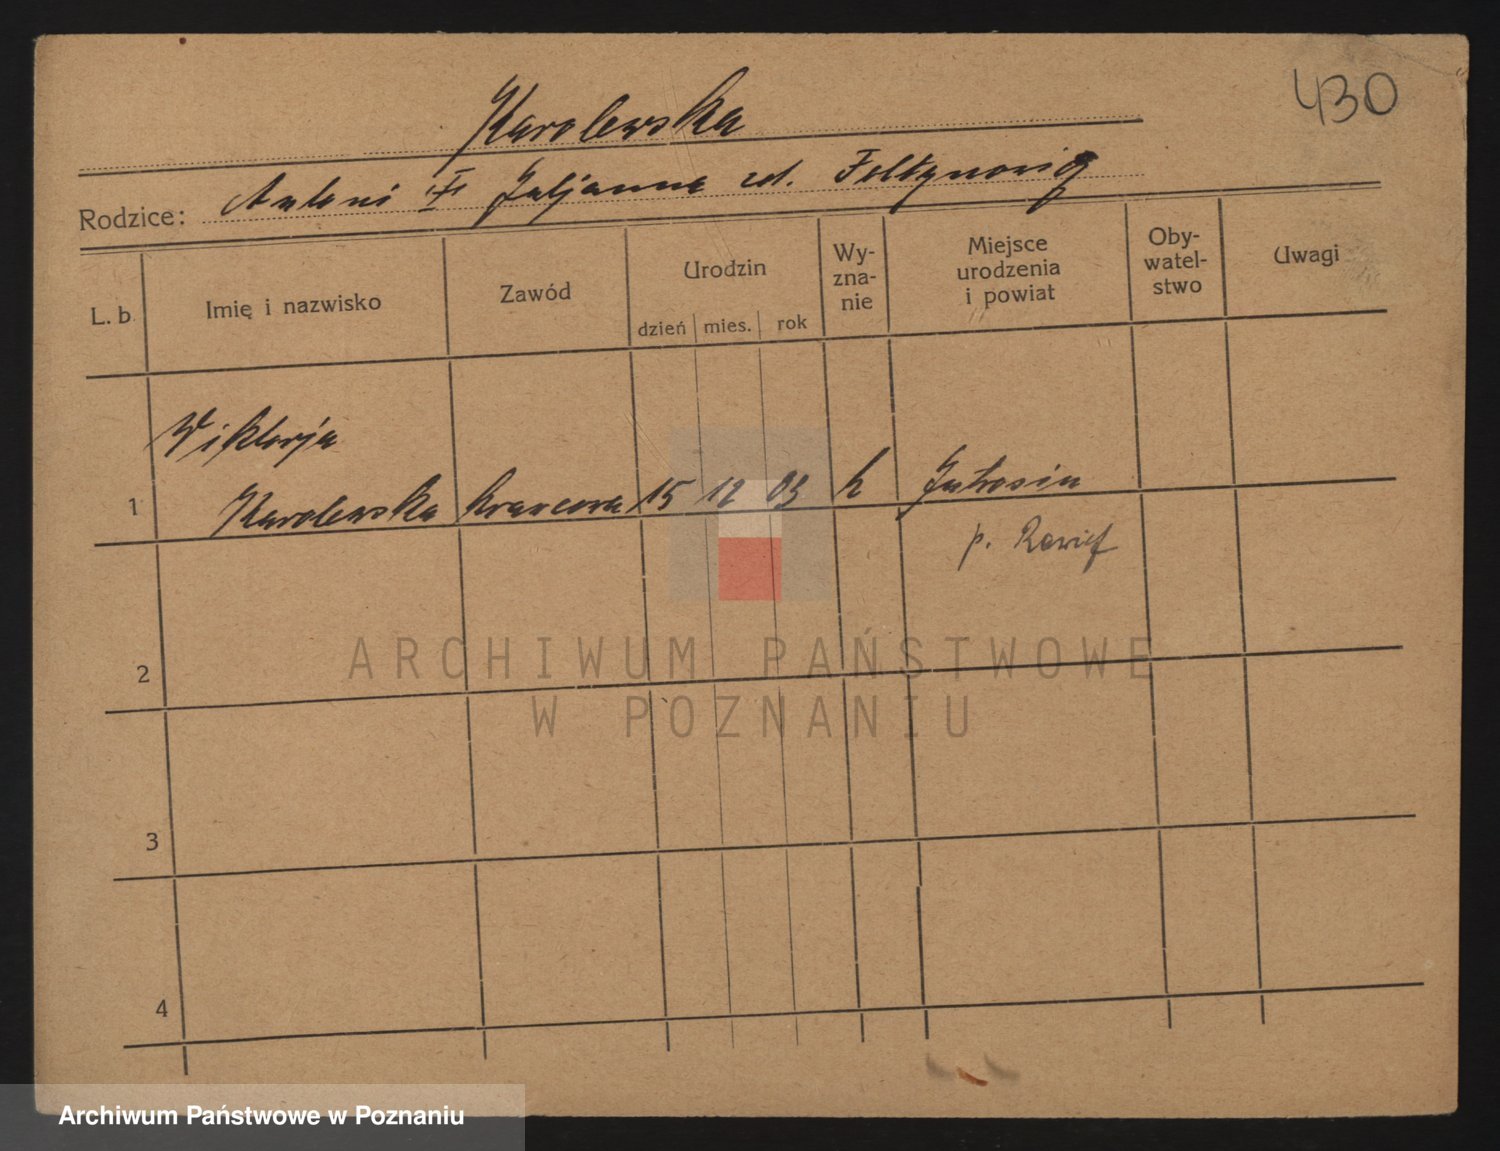 430
Karolewska
Rodzice: Antoni i Juljanna zd. Foltynowicz
L. b. Imię i nazwisko Zawód Urodzin Wy-zna-nie Miejsce urodzenia i powiat Oby-watel-stwo Uwagi
dzień mies. rok
Wiktorja
1 Karolewska krawcowa 15 12 03 k Jutrosin
p. Rawicz
2
3
4
ARCHIWUM PAŃSTWOWE
W POZNANIU
Archiwum Państwowe w Poznaniu